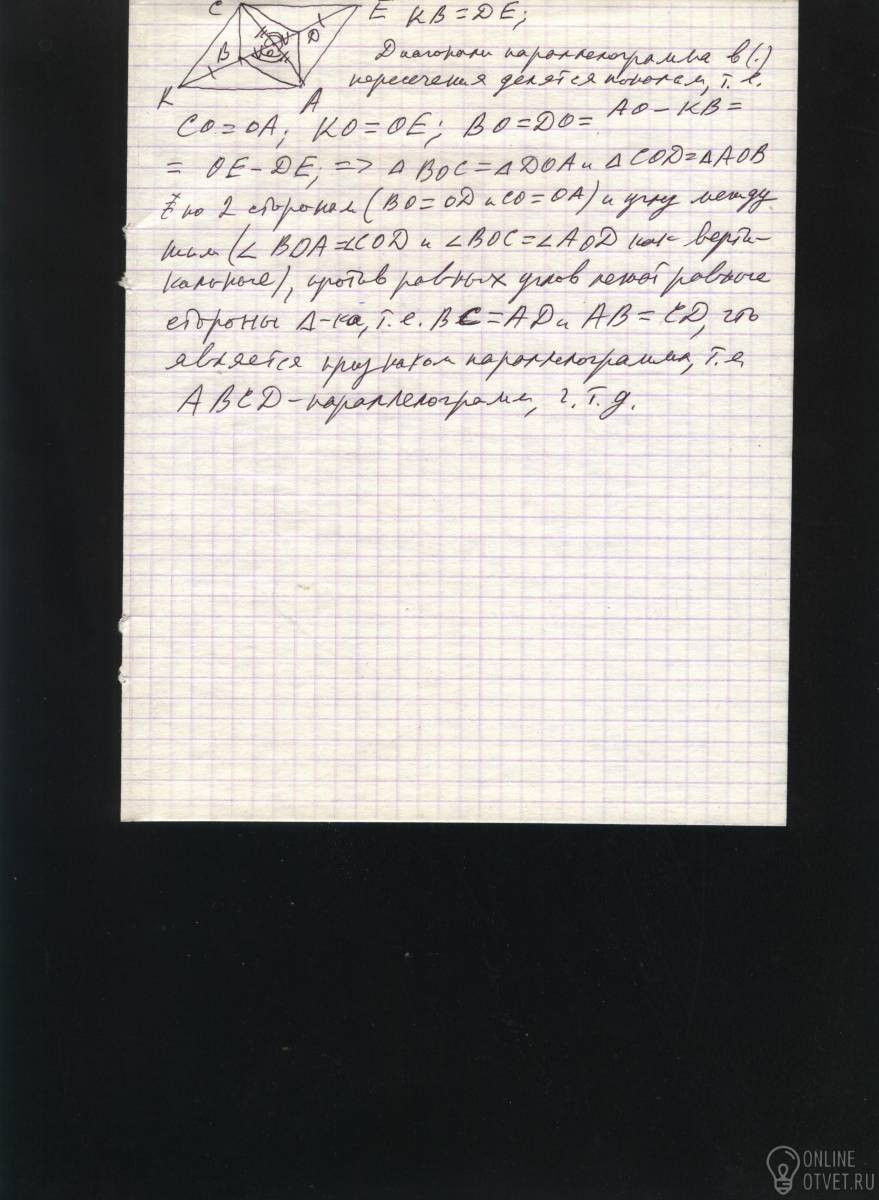 C E KB = DE;
B O D
K A
Диагонали параллелограмма в (·)
пересечения делятся пополам, т. е.
CO = OA; KO = OE; BO = DO = AO - KB =
= OE - DE; => △ BOC = △ DOA и △ COD = △ AOB
по 2 сторонам (BO = OD и CO = OA) и углу между
ним (∠ BOA = ∠COD и ∠BOC = ∠AOD как верти-
кальные), против равных углов лежат равные
стороны △-ка, т. е. BC = AD и AB = CD, что
является признаком параллелограмма, т. е
ABCD - параллелограмм, ч. т. д.
ONLINE
OTVET.RU